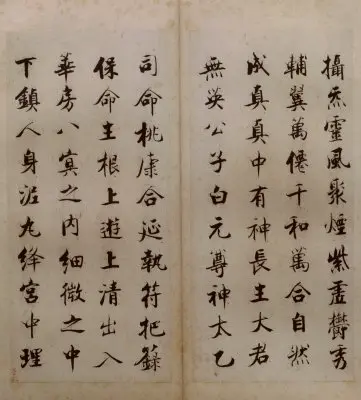 攝炁靈風聚煙紫虛欝秀
輔翼萬僊千和萬合自然
成真真中有神長主大君
無英公子白元尊神太乙
司命桃康合延執符把籙
保命生根上遊上清出入
華房八冥之内細微之中
下鎮人身泥丸絳宮中理